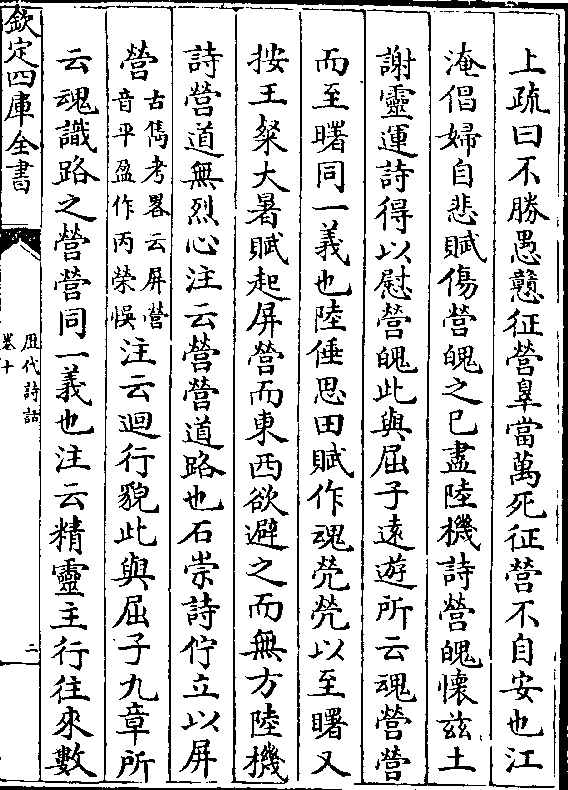 上疏曰不勝愚戇征營辠當萬死征營不自安也江
淹倡婦自悲賦傷營魄之已盡陸機詩營魄懷茲土
謝靈運詩得以慰營魄此與屈子遠遊所云魂營營
而至曙同一義也陸倕思田賦作魂焭焭以至曙又
按王粲大暑賦起屏營而東西欲避之而無方陸機
詩營道無烈心注云營營道路也石崇詩佇立以屏
營古雋考畧云屏營音平盈作丙榮悞注云迴行貌此與屈子九章所
云魂識路之營營同一義也注云精靈主行往來數
欽定四庫全書
歷代詩話
卷十
二